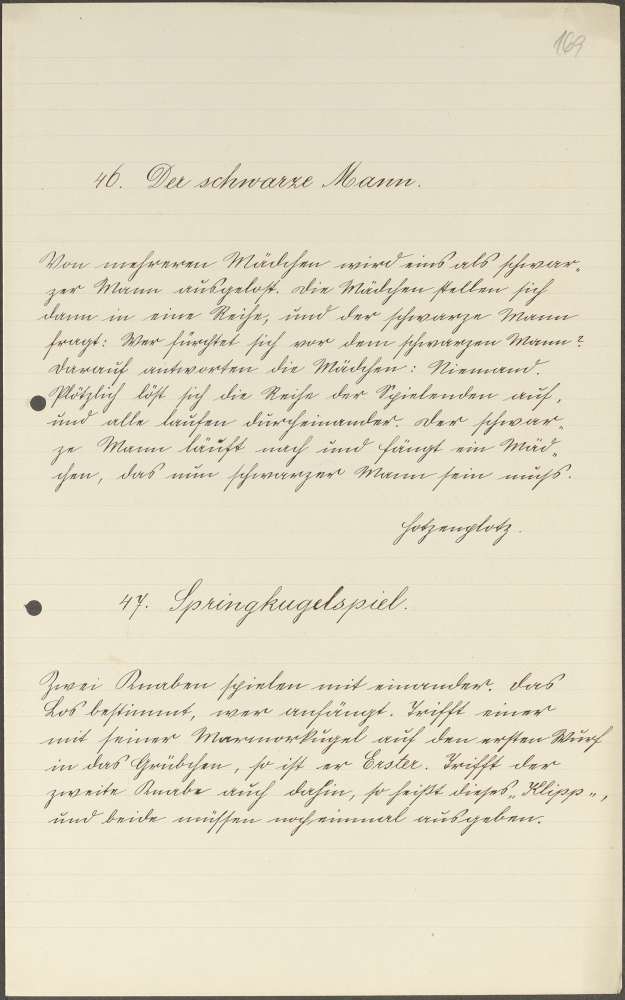 169
46. Der schwarze Mann.
Von mehreren Mädchen wird eins als schwar„
zer Mann ausgelost. Die Mädchen stellen sich
dann in eine Reihe, und der schwarze Mann
fragt: Wer fürchtet sich vor dem schwarzen Mann?
Darauf antworten die Mädchen: Niemand.
Plötzlich löst sich die Reihe der Spielenden auf,
und alle laufen durcheinander. Der schwar„
ze Mann läuft nach und fängt ein Mäd„
chen, das nun schwarzer Mann sein muß.
Hotzenplotz.
47. Springkugelspiel.
Zwei Knaben spielen mit einander. Das
Los bestimmt, wer anfängt. Trifft einer
mit seiner Marmorkugel auf den ersten Wurf
in das Grübchen, so ist er Erster. Trifft der
zweite Knabe auch dahin, so heißt dieses „Klipp„,
und beide müssen noch einmal ausgeben.